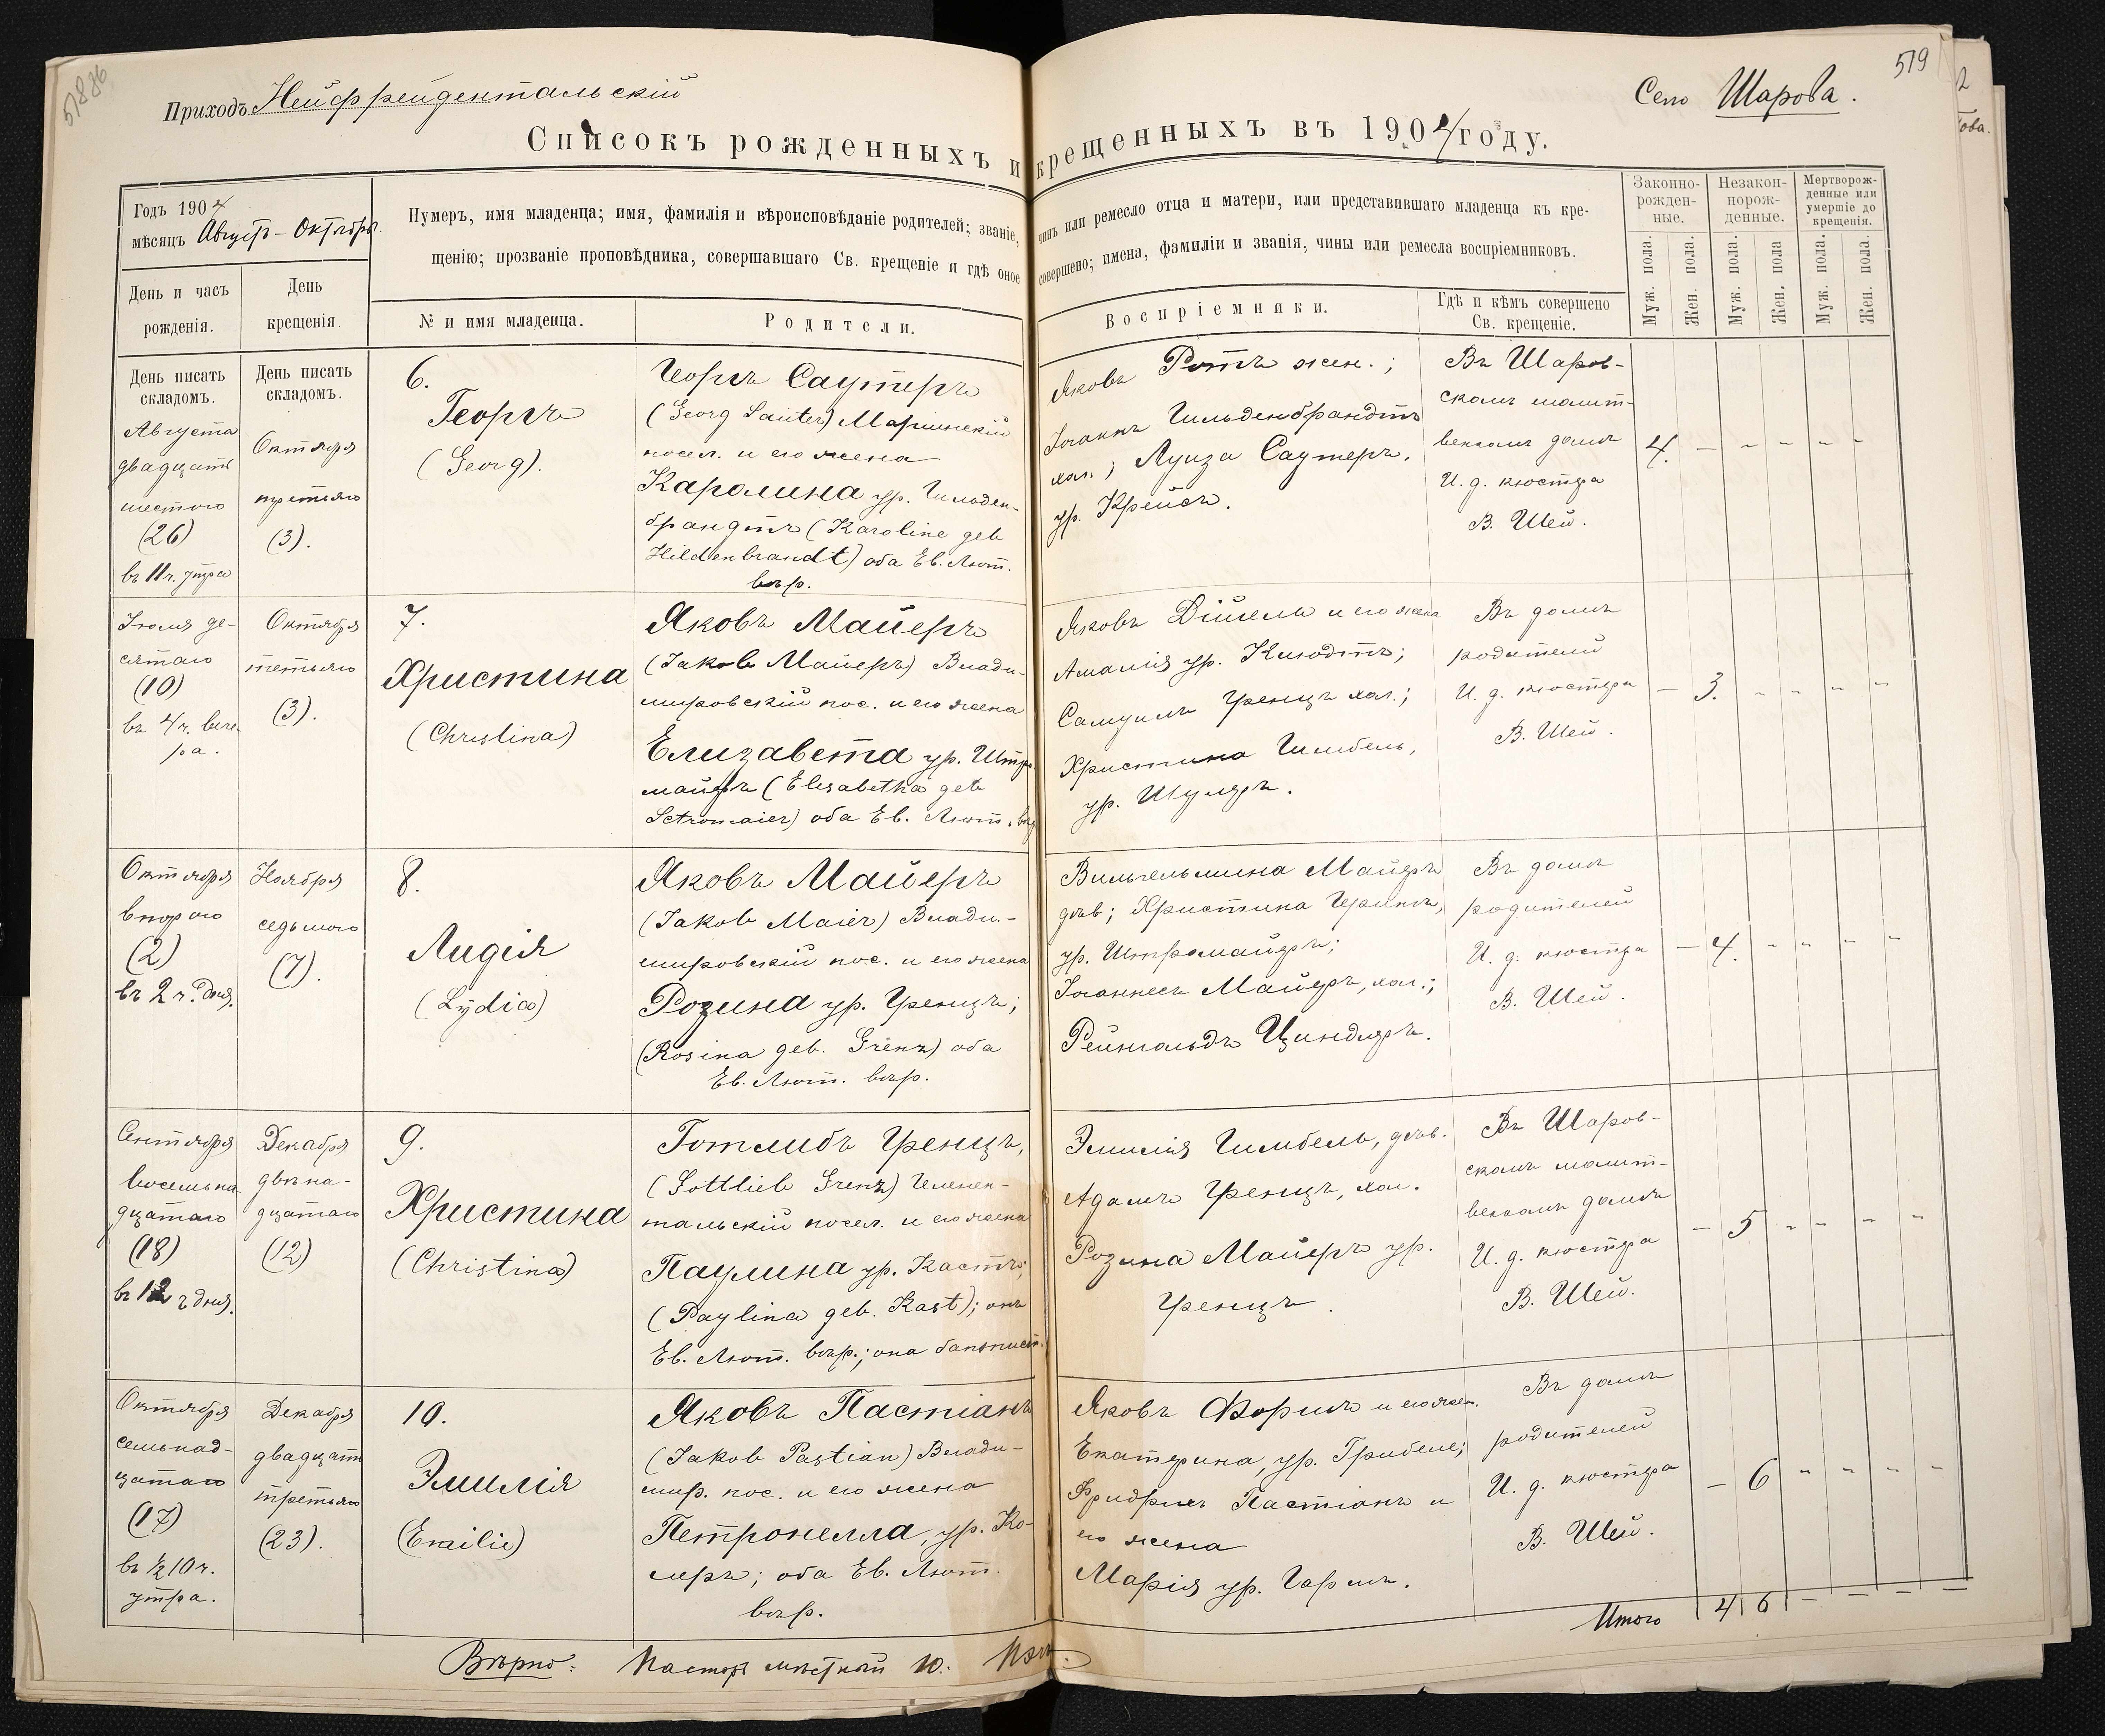 Приходъ Нейфрейдентальскій
Село Шарова.
519
Списокъ рожденныхъ и крещенныхъ въ 1904 году.
Годъ 1904
мѣсяцъ Августъ - Октябрь.
Нумеръ, имя младенца; имя, фамилія и вѣроисповѣданіе родителей; званіе, чинъ или ремесло отца и матери, или представившаго младенца къ кре-
щенію; прозваніе проповѣдника, совершавшаго Св. крещеніе и гдѣ оное совершено; имена, фамиліи и званія, чины или ремесла воспріемниковъ.
Законно-
рожден-
ные.
Незакон-
норож-
денные.
Мертворож-
денные или
умершіе до
крещенія.
День и часъ
рожденія.
День
крещенія.
№ и имя младенца.
Родители.
Воспріемники.
Гдѣ и кѣмъ совершено
Св. крещеніе.
Муж. пола.
Жен. пола.
Муж. пола.
Жен. пола
Муж. пола.
Жен. пола.
День писать
складомъ.
Августа
двадцать
шестого
(26)
въ 11 ч. утра
День писать
складомъ.
Октября
третьяго
(3).
6.
Георгъ
(Georg).
Георгъ Саутеръ
(Georg Sauter) Маріинскій
посел. и его жена
Каролина ур. Гильден-
брандтъ (Karoline geb
Hildenbrandt) оба Ев. Лют.
вѣр.
Яковъ Ротъ жен.;
Іоганнъ Гильденбрандтъ
хол.; Луиза Саутеръ,
ур. Крейсъ.
Въ Шаров-
скомъ молит-
венномъ домѣ
И. д. кюстра
В. Шей.
4. - - - - -
Іюля де-
сятаго
(10)
въ 4 ч. вече-
ра.
Октября
третьяго
(3).
7.
Христина
(Christina)
Яковъ Майеръ
(Јаковъ Майеръ) Влади-
мировскій пос. и его жена
Елизавета ур. Штро
майеръ (Elisabetha geb
Stromaier) оба Ев. Лют. вѣр
Яковъ Дійель и его жена
Амалія ур. Кнюдтъ;
Самуилъ Гренцъ хол.;
Христина Гимбель,
ур. Шулеръ.
Въ домѣ
родителей
И. д. кюстра
В. Шей.
- 3. - - - -
Октября
второго
(2)
въ 2 ч. дня.
Ноября
седьмого
(7).
8.
Лидія
(Lydia)
Яковъ Майеръ
(Jakob Maier) Влади-
мировскій пос. и его жена
Розина ур. Гренцъ;
(Rosina geb. Grenz) оба
Ев. Лют. вѣр.
Вильгельмина Майеръ
дѣв; Христина
ур. Штромайеръ;
Іоганнесъ Майеръ, хол.;
Рейнгольдъ Циндлеръ.
Въ домѣ
родителей
И. д. кюстра
В. Шей.
- 4. - - - -
Сентября
восемьна-
дцатаго
(18)
въ 12 ч дня.
Декабря
двѣна-
дцатаго
(12)
9.
Христина
(Christina)
Готлибъ Гренцъ,
(Gottlieb Grenz)
тальскій посел. и его жена
Паулина ур. Кастъ;
(Paylina geb. Kast); онъ
Ев. Лют. вѣр.; она баптист.
Эмилія Гимбель, дѣв.
Адамъ Гренцъ, хол.
Розина Майеръ ур.
Гренцъ.
Въ Шаров-
скомъ молит-
венномъ домѣ
И. д. кюстра
В. Шей.
- 5 - - - -
Октября
семьнад-
цатаго
(17)
въ ½ 10 ч.
утра.
Декабря
двадцать
третьяго
(23).
10.
Эмилія
(Emilie)
Яковъ Пастіанъ
(Jakob Pastian) Влади-
мир. пос. и его жена
Петронелла, ур. Ко-
леръ; оба Ев. Лют.
вѣр.
Яковъ Форимъ и его жен.
Екатерина, ур. Грибеле;
Фридрихъ Пастіанъ и
его жена
Марія ур. Гармъ.
Въ домѣ
родителей
И. д. кюстра
В. Шей.
- 6 - - - -
Итого 4 6 - - - -
Вѣрно: Пасторъ мѣстный Ю.